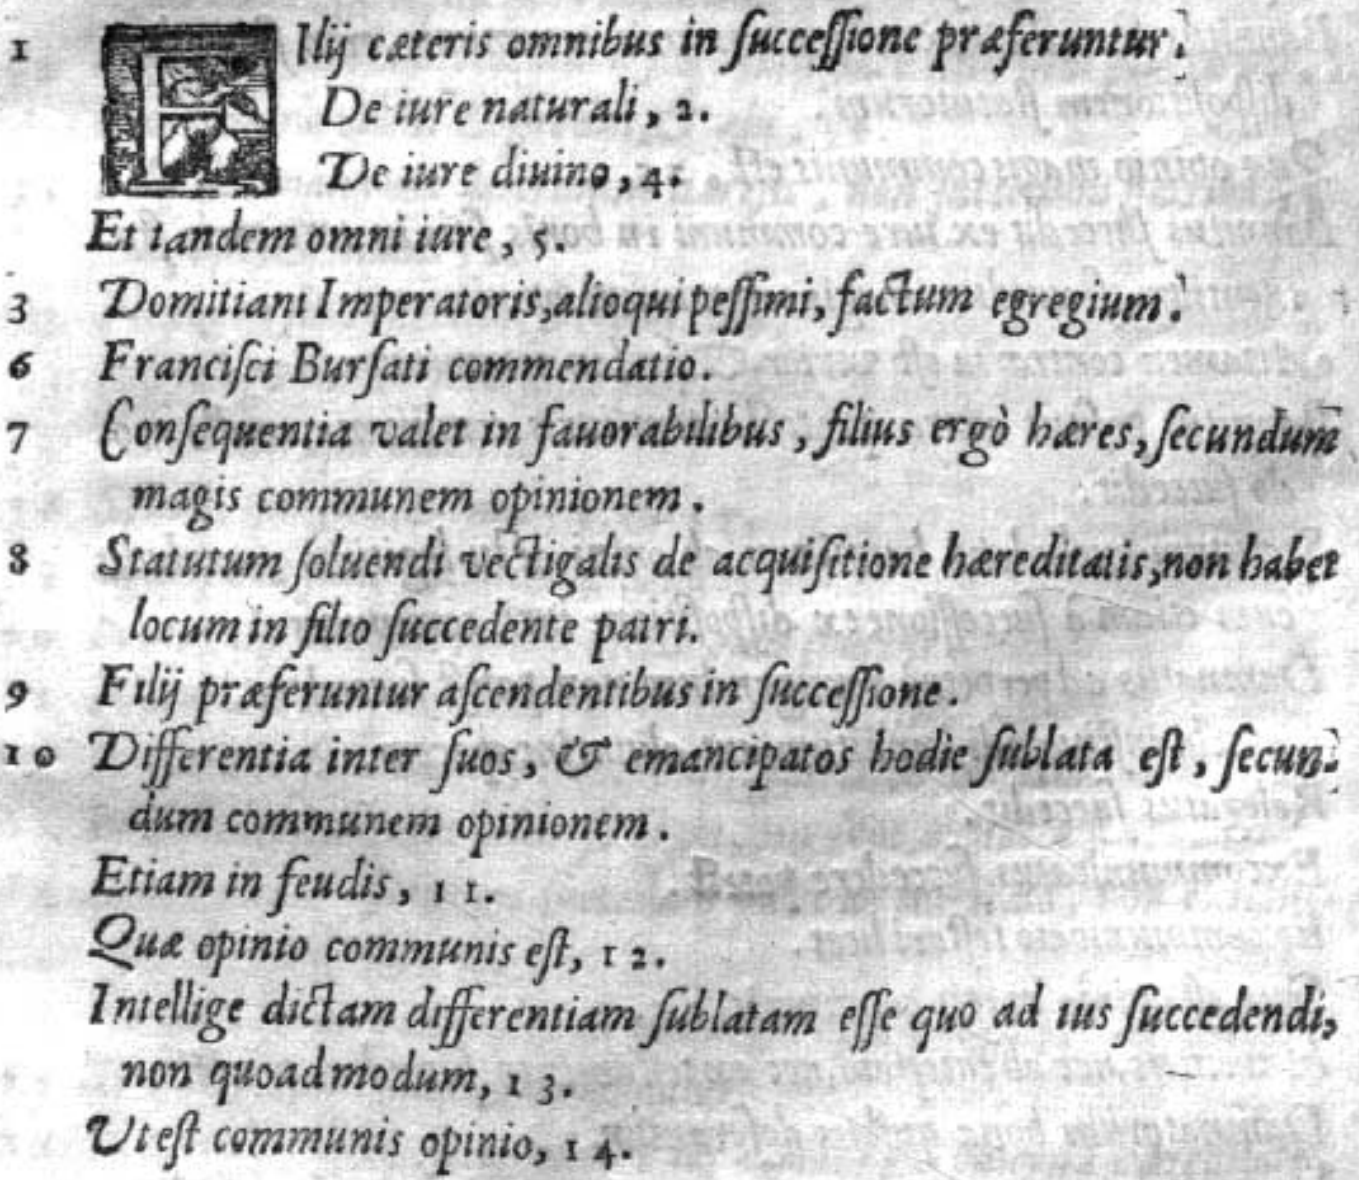 1 FIlij cæteris omnibus in ſucceſſione præferuntur.
De iure naturali, 2.
De iure diuino, 4.
Et tandem omni iure, 5.
3 Domitiani Imperatoris, alioqui peſſimi, factum egregium.
6 Franciſci Burſati commendatio.
7 Conſequentia valet in fauorabilibus, filius ergò hæres, ſecundum
magis communem opinionem.
8 Statutum ſoluendi vectigalis de acquiſitione hæreditatis, non habet
locum in filio ſuccedente patri.
9 Filij præferuntur aſcendentibus in ſucceſſione.
10 Differentia inter ſuos, & emancipatos hodie ſublata eſt, ſecun-
dum communem opinionem.
Etiam in feudis, 11.
Quæ opinio communis eſt, 12.
Intellige dictam differentiam ſublatam eſſe quo ad ius ſuccedendi,
non quoad modum, 13.
Vt eſt communis opinio, 14.